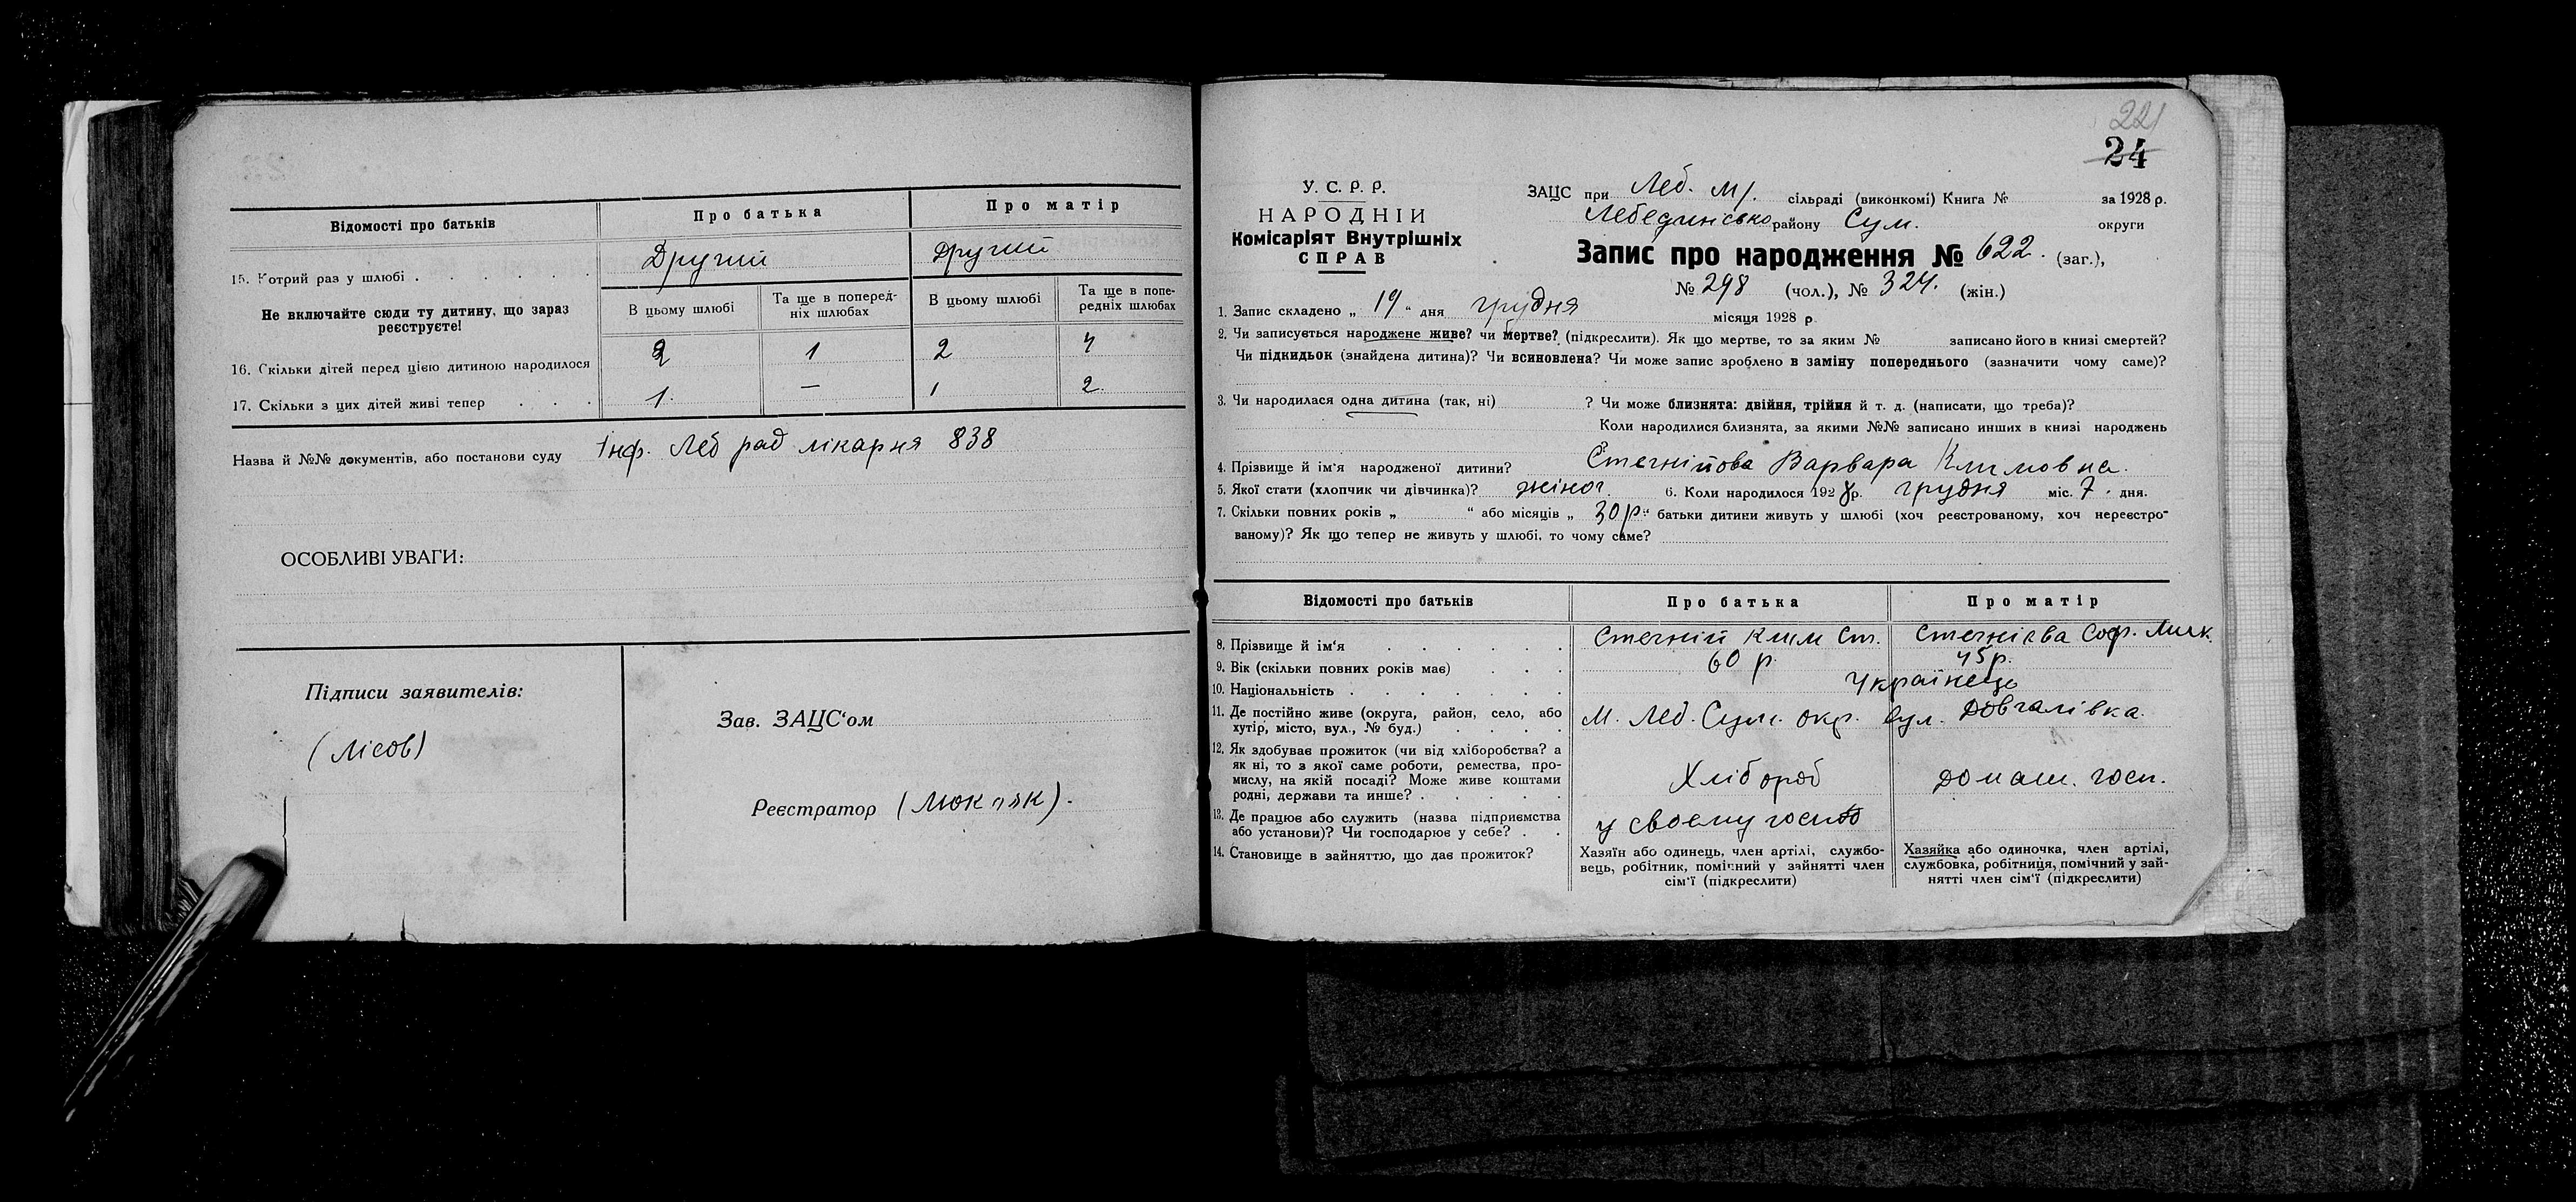 Відомості про батьків
Про батька
Про матір
15. Котрий раз у шлюбі
Другий
Другий
Не включайте сюди ту дитину, що зараз реєструєте!
В цьому шлюбі
Та ще в поперед-
ніх шлюбах
В цьому шлюбі
Та ще в попе-
редніх шлюбах
16. Скільки дітей перед цією дитиною народилося
2 1 2 4
17. Скільки з цих дітей живі тепер
1. — 1 2.
Назва й №№ документів, або постанови суду Інф. Леб рад лікарня 838
ОСОБЛИВІ УВАГИ:
Підписи заявителів:
(Лісов)
Зав. ЗАЦС'ом
Реєстратор
221
24
У. С. Р. Р.
НАРОДНІЙ
Комісаріят Внутрішніх
СПРАВ
ЗАЦС при Леб. м/. сільраді (виконкомі) Книга № за 1928 р.
Лебединсько району Сум. округи
Запис про народження № 622. (заг.),
№ 298 (чол.), № 324. (жін.)
1. Запис складено „ 19 " дня грудня місяця 1928 р.
2. Чи записується народжене живе? чи мертве? (підкреслити). Як що мертве, то за яким № записано його в книзі смертей?
Чи підкидьок (знайдена дитина)? Чи всиновлена? Чи може запис зроблено в заміну попереднього (зазначити чому саме)?
3. Чи народилася одна дитина (так, ні) ? Чи може близнята: двійня, трійня й т. д. (написати, що треба)?
Коли народилися близнята, за якими №№ записано инших в книзі народжень
4. Прізвище й ім'я народженої дитини? Стегнійова Варвара Климовна.
5. Якої стати (хлопчик чи дівчинка)? жіноч. 6. Коли народилося 1928 р. грудня міс. 7. дня.
7. Скільки повних років „ " або місяців „ 30 р. " батьки дитини живуть у шлюбі (хоч реєстрованому, хоч нереєстро-
ваному)? Як що тепер не живуть у шлюбі, то чому саме?
Відомості про батьків
Про батька
Про матір
8. Прізвище й ім'я
Стегній Клим Ст.
Стегнієва Соф.
9. Вік (скільки повних років має)
60 р.
45 р.
10. Національність
Українець
11. Де постійно живе (округа, район, село, або
хутір, місто, вул., № буд.)
М. Леб. Сум. окр. вул. Довгалівка.
12. Як здобуває прожиток (чи від хліборобства? а
як ні, то з якої саме роботи, ремества, про-
мислу, на якій посаді? Може живе коштами
родні, держави та инше?
Хлібороб
домаш. госп.
13. Де працює або служить (назва підприємства
або установи)? Чи господарює у себе?
у своєму госп
14. Становище в зайняттю, що дає прожиток?
Хазяїн або одинець, член артілі, службо-
вець, робітник, помічний у зайнятті член
сім'ї (підкреслити)
Хазяйка або одиночка, член артілі,
службовка, робітниця, помічний у зай-
нятті член сім'ї (підкреслити)